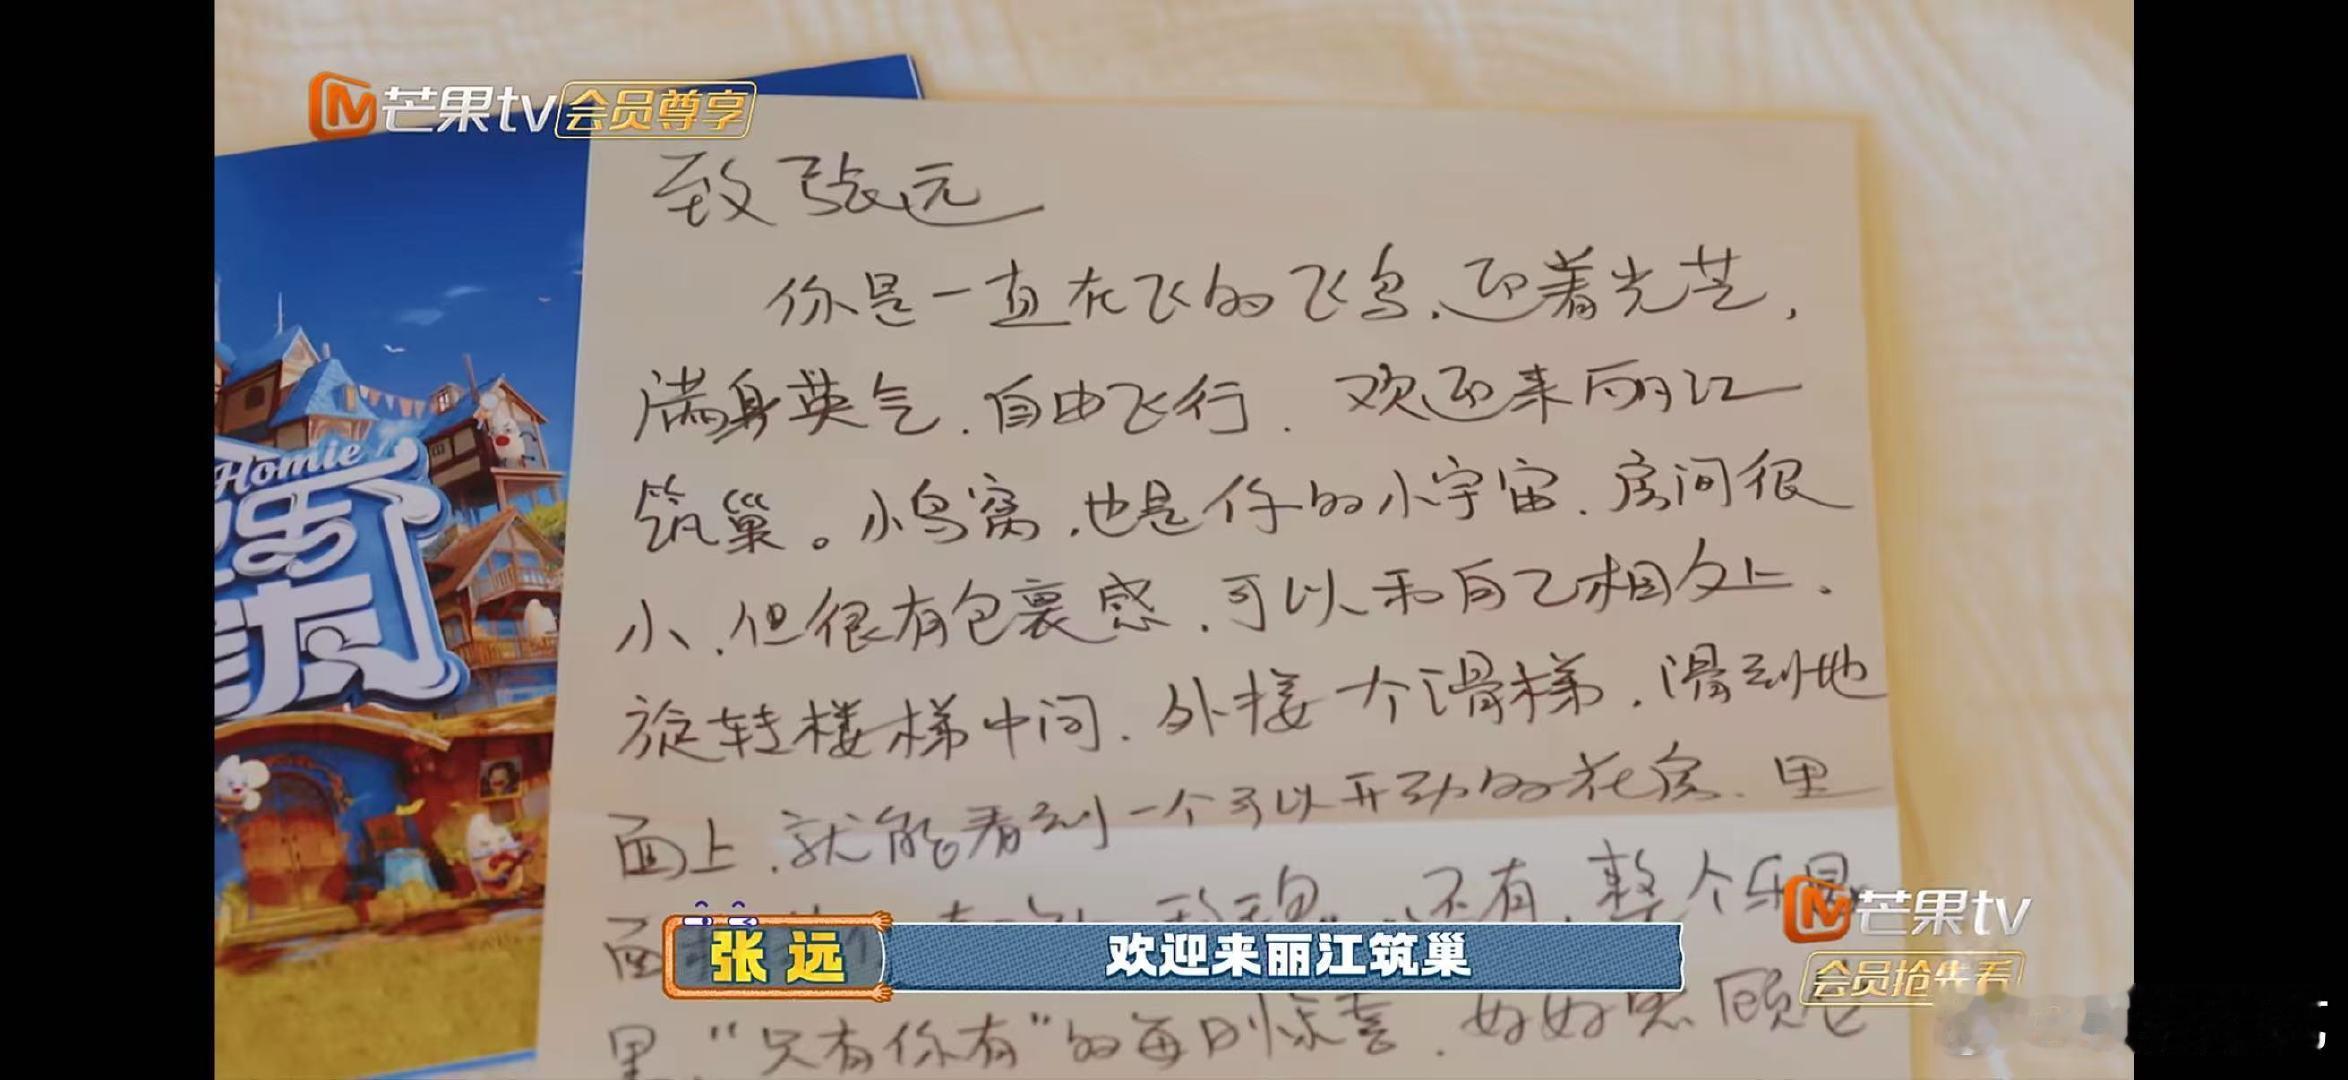 芒果tv 会员尊享
致张远
你是一直在飞的飞鸟,迎着光芒,
满身英气,自由飞行. 欢迎来丽江
筑巢。小鸟窝,也是你的小宇宙,房间很
小,但很有包裹感,可以和自己相处.
旋转楼梯中间,外接一个滑梯,滑到地
面上,就能看到一个可以开动的花房,里
面
还有,整个乐
里,“只有你有”的每日惊喜,好好照顾它
Homie
乐
芒果tv
会员抢先看
张远 欢迎来丽江筑巢